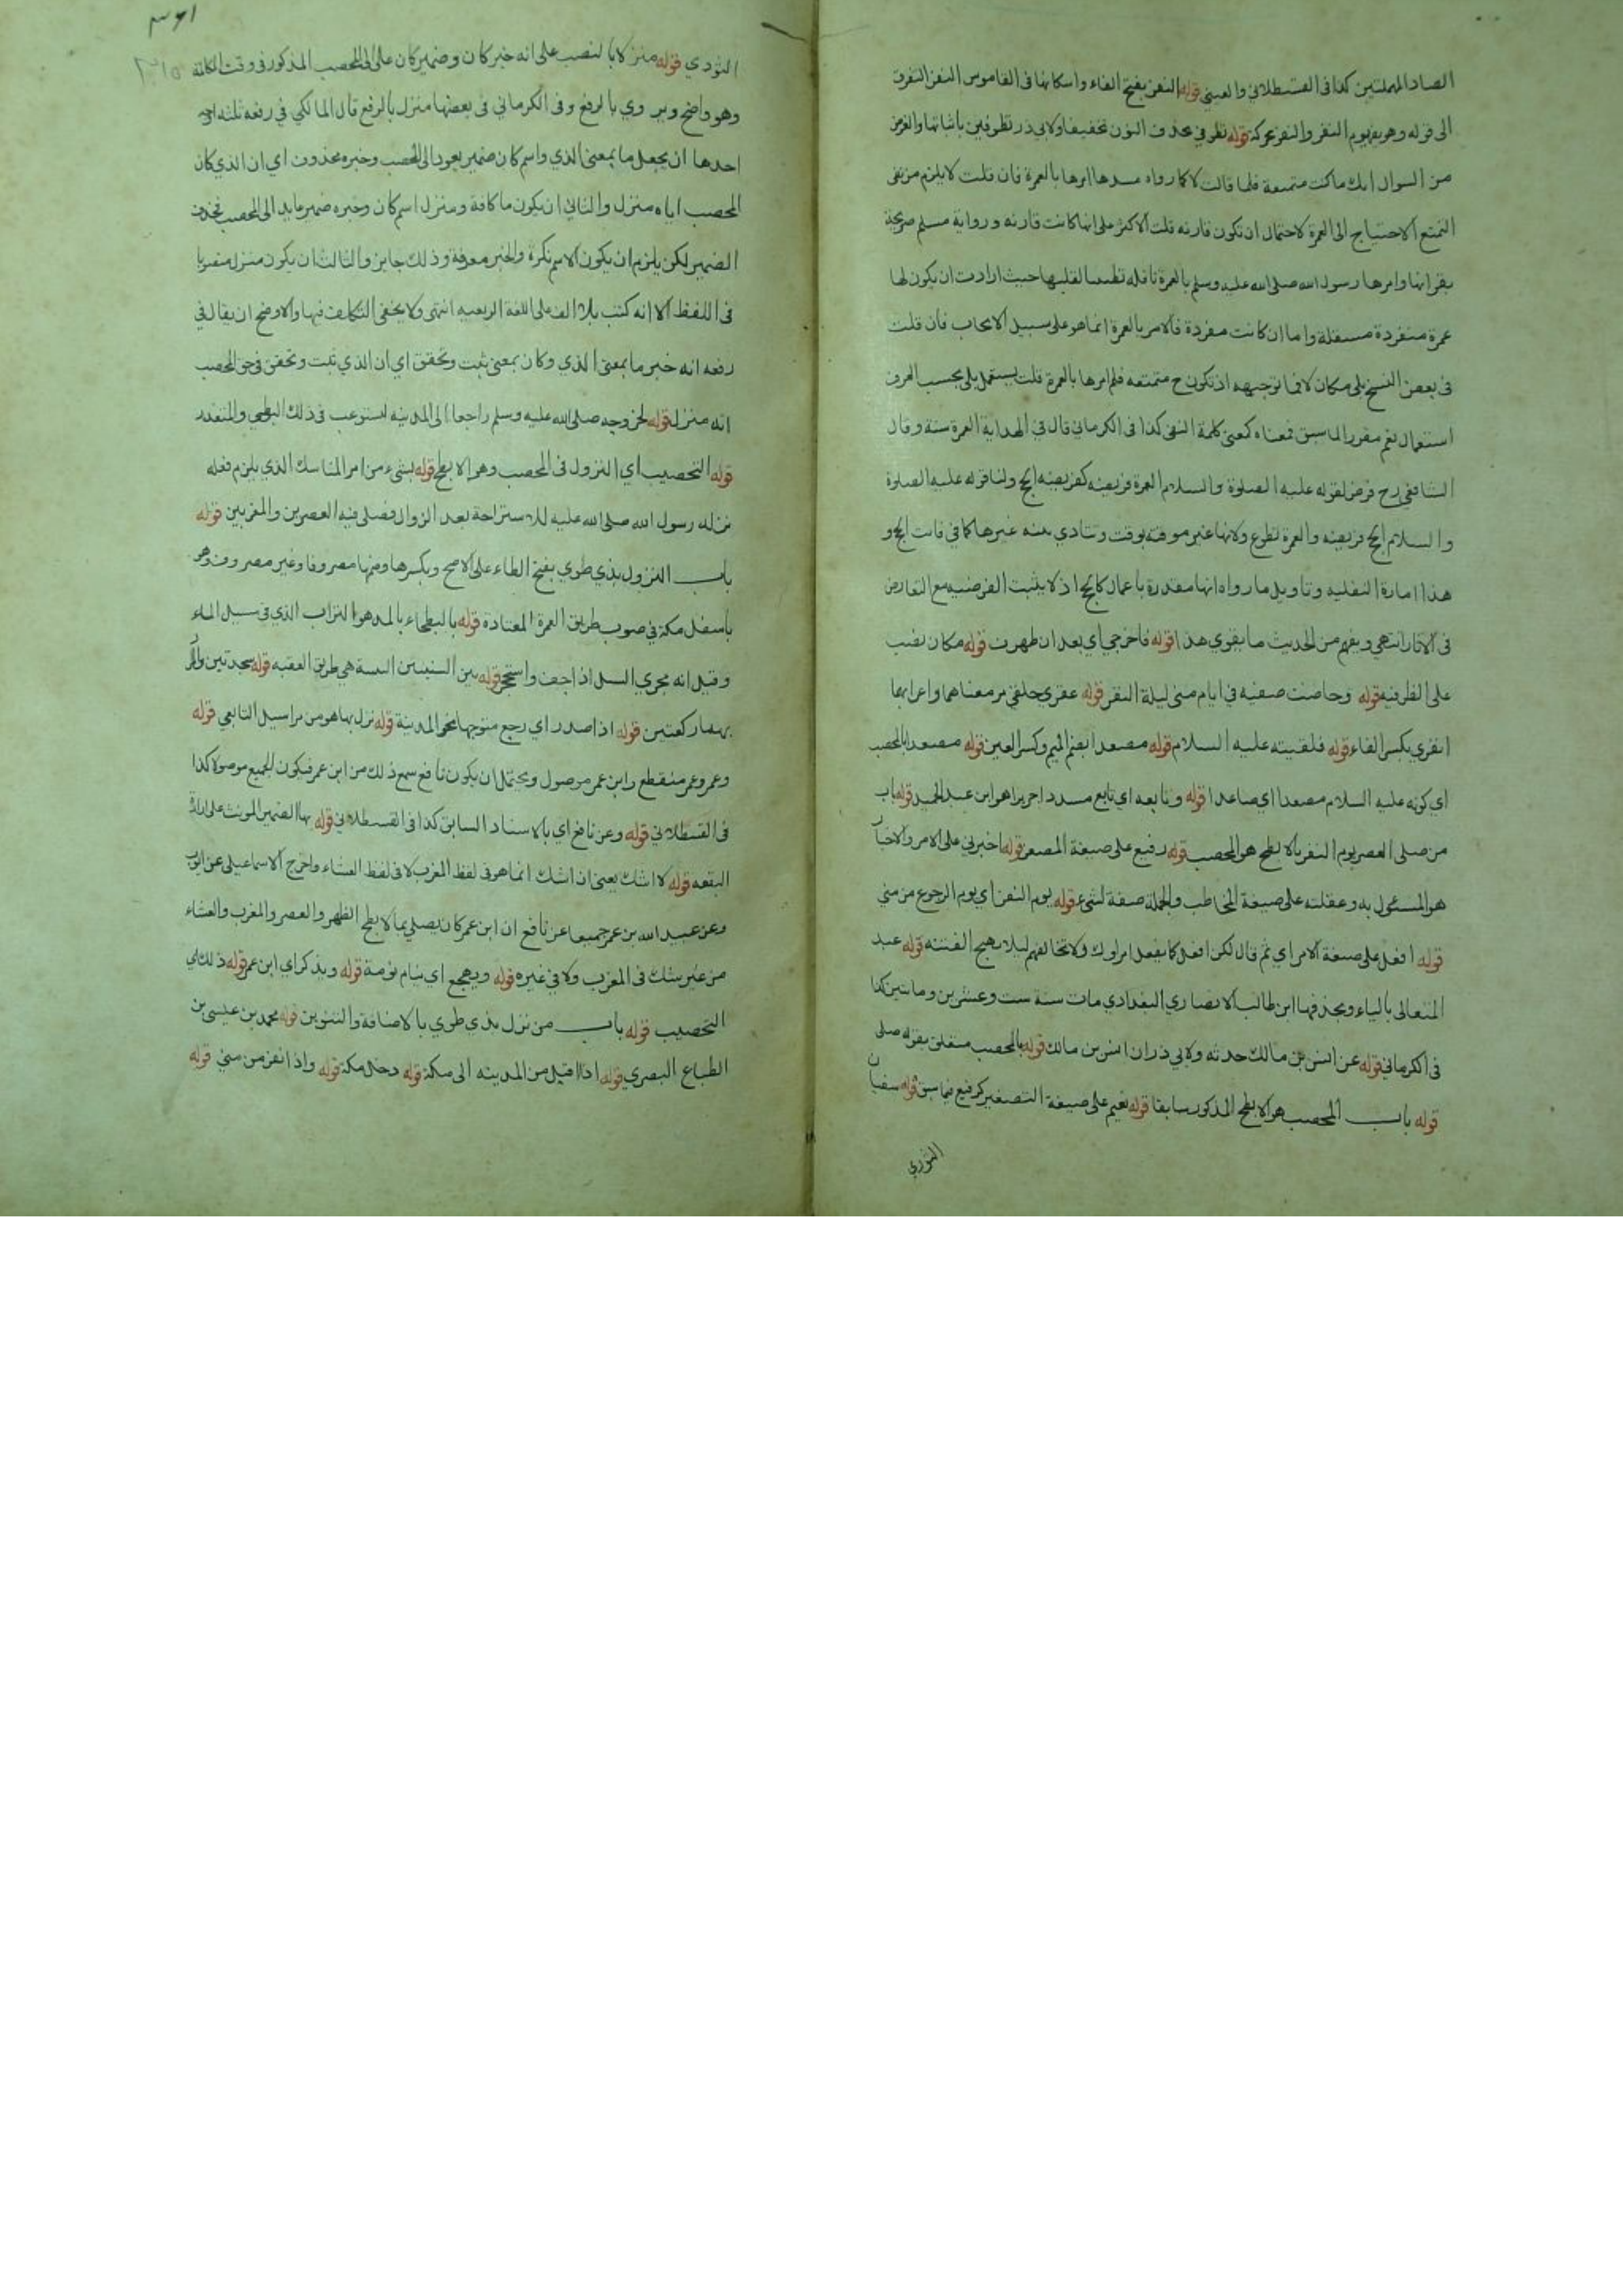 الصاد المهملتين كذا في القسطلاني والعيني قوله النفر بفتح الفاء واسكانها في القاموس النفر التفرق
الى قوله وهو يفر يوم النفر والنفر محركة قوله تطوفي بحذف النون تخفيفا ولابي ذر تطوفين باثباتها والغرض
من السوال انك ما كنت متمتعة فلما قالت لا كما رواه مسدد امرها بالعمرة فان قلت لا يلزم من نفي
التمتع الاحتياج الى العمرة لاحتمال ان تكون قارنه قلت الاكثر على انها كانت قارنه ورواية مسلم صريحة
بقرانها وامرها رسول الله صلى الله عليه وسلم بالعمرة نافله تطييبا لقلبها حيث ارادت ان يكون لها
عمرة منفردة مستقلة واما ان كانت مفردة فالامر بالعمرة انما هو على سبيل الايجاب فان قلت
في بعض النسخ بلى مكان لا فما توجيهه اذ تكون ح متمتعه فلم امرها بالعمرة قلت يستعمل بلى بحسب العرف
استعمال نعم مقررا لما سبق فمعناه كمعنى كلمة النفي كذا في الكرماني قال في الهداية العمرة سنة وقال
الشافعي رح فرض لقوله عليه الصلوة والسلام العمرة فريضه كفريضه الحج ولنا قوله عليه الصلوة
والسلام الحج فريضه والعمرة تطوع ولانها غير موقته بوقت وتتادي بنيه غيرها كما في فائت الحج و
هذا امارة النفليه وتاويل ما رواه انها مقدرة باعمال كالحج اذ لا يثبت الفرضيه مع التعارض
في الاثار انتهي ويفهم من الحديث ما يقوي هذا قوله فاخرجي اي بعد ان طهرت قوله مكان نصب
على الظرفيه قوله وحاضت صفيه في ايام منى ليلة النفر قوله عقرى حلقى مر معناهما واعرابهما
انفري بكسر الفاء قوله فلقيته عليه السلام قوله مصعدا بضم الميم وكسر العين قوله مصعدا بالمحصب
اي كونه عليه السلام مصعدا اي صاعدا قوله وتابعه اي تابع مسددا جرير هو ابن عبد الحميد قوله باب
من صلى العصر يوم النفر بالابطح هو المحصب قوله رفيع على صيغة المصغر قوله اخبرني على الامر والاخبار
هو المسئول به وعقلته على صيغة المخاطب والجملة صفة لشئ قوله يوم النفر اي يوم الرجوع من منى
قوله افعل على صيغة الامر اي ثم قال لكن افعل كما يفعل امراوك ولا تخالفهم ليلا يهيج الفتنه قوله عبد
المتعالى بالياء وبحذفها ابن طالب الانصاري البغدادي مات سنة ست وعشرين ومائتين كذا
في الكرماني قوله عن انس بن مالك حدثه ولابي ذر ان انس بن مالك قوله بالمحصب متعلق بقوله صلى
قوله باب المحصب هو الابطح المذكور سابقا قوله نعيم على صيغة التصغير كرفيع فيما سبق قوله سفيان
الثوري
٣٦١
الثوري قوله منزلا بالنصب على انه خبر كان وضمير كان عائد الى المحصب المذكور في وقت
وهو واضح ويروي بالرفع وفي الكرماني في بعضها منزل بالرفع قال المالكي في رفعه ثلثه اوجه
احدها ان يجعل ما بمعنى الذي واسم كان ضمير يعود الى المحصب وخبره محذوف اي ان الذي كان
المحصب اياه منزل والثاني ان يكون ما كافة ومنزل اسم كان وخبره ضمير عايد الى المحصب فحذف
الضمير لكن يلزم ان يكون الاسم نكرة والخبر معرفة وذلك جايز والثالث ان يكون منزل منصوبا
في اللفظ الا انه كتب بلا الف على اللغة الربعيه انتهى ولا يخفى التكلف فيها والاوضح ان يقال في
رفعه انه خبر ما بمعنى الذي وكان بمعنى ثبت وتحقق اي ان الذي ثبت وتحقق في حق المحصب
انه منزل قوله لخروجه صلى الله عليه وسلم راجعا الى المدينه استوعب في ذلك البطي والمتعذر
قوله التحصيب اي النزول في المحصب وهو الابطح قوله بشئ من امر المناسك الذي يلزم فعله
نزله رسول الله صلى الله عليه للاستراحة بعد الزوال فصلى فيه العصرين والمغربين قوله
باب النزول بذي طوي بفتح الطاء على الاصح وبكسرها وضمها مصروفا وغير مصروف وهو
باسفل مكة في صوب طريق العمرة المعتادة قوله بالبطحاء بالمد هو التراب الذي في سيل الماء
وقيل انه مجرى السيل اذا جف واستحجر قوله بين الثنيتين الثنية هي طريق العقبه قوله سجدتين والمراد
بهما ركعتين قوله اذا صدر اي رجع متوجها نحو المدينة قوله نزل بها هو من مراسيل التابعي قوله
وعمر وعمر منقطع وابن عمر موصول ويحتمل ان يكون نافع سمع ذلك من ابن عمر فيكون الجميع موصولا كذا
في القسطلاني قوله وعن نافع اي بالاسناد السابق كذا في القسطلاني قوله بها الضمير المونث على ارادة
البقعه قوله لا اشك يعني ان اشك انما هو في لفظ المغرب لا في لفظ العشاء واخرج الاسماعيلي عن ايوب
وعن عبيد الله بن عمر جميعا عن نافع ان ابن عمر كان يصلي بالابطح الظهر والعصر والمغرب والعشاء
من غير شك في المغرب ولا في غيره قوله ويهجع اي ينام نومة قوله ويذكر اي ابن عمر قوله ذلك اي
التحصيب قوله باب من نزل بذي طوي بالاضافة والتنوين قوله محمد بن عيسى بن
الطباع البصري قوله اذا اقبل من المدينه الى مكة قوله دخل مكة قوله واذا نفر من منى قوله